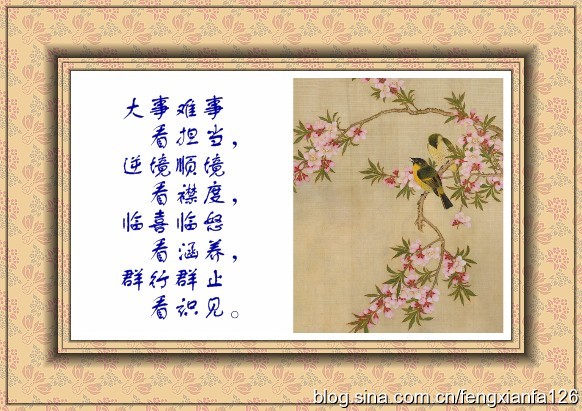 大事难事
看担当，
逆境顺境
看襟度，
临喜临怒
看涵养，
群行群止
看识见。
blog.sina.com.cn/fengxianfa126